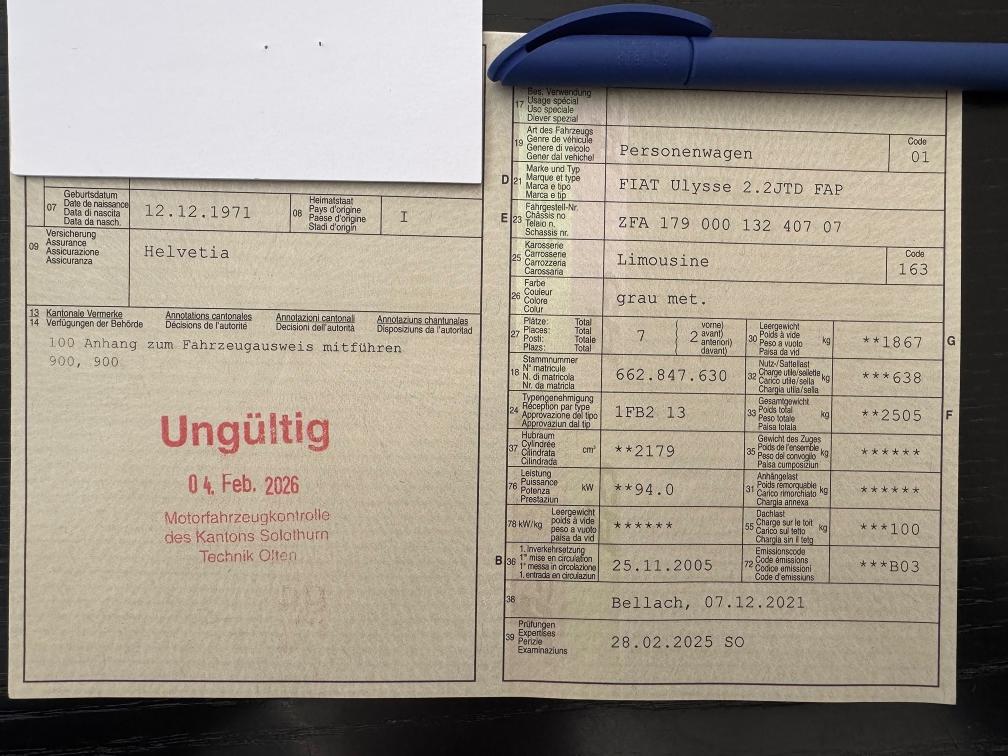 07 Geburtsdatum
Date de naissance
Data di nascita
Data da nasch.
12.12.1971
08 Heimatstaat
Pays d'origine
Paese d'origine
Stadi d'origin
I
09 Versicherung
Assurance
Assicurazione
Assicuranza
Helvetia
13 Kantonale Vermerke Annotations cantonales Annotazioni cantonali Annotaziuns chantunales
14 Verfügungen der Behörde Décisions de l'autorité Decisioni dell'autorità Disposiziuns da l'autoritad
100 Anhang zum Fahrzeugausweis mitführen
900, 900
Ungültig
04. Feb. 2026
Motorfahrzeugkontrolle
des Kantons Solothurn
Technik Olten
17 Bes. Verwendung
Usage spécial
Uso speciale
Diever spezial
19 Art des Fahrzeugs
Genre de véhicule
Genere di veicolo
Gener dal vehichel
Personenwagen
Code
01
D 21 Marke und Typ
Marque et type
Marca e tipo
Marca e tip
FIAT Ulysse 2.2JTD FAP
E 23 Fahrgestell-Nr.
Châssis no
Telaio n.
Schassis nr.
ZFA 179 000 132 407 07
25 Karosserie
Carrosserie
Carrozzeria
Carossaria
Limousine
Code
163
26 Farbe
Couleur
Colore
Colur
grau met.
27 Plätze: Total
Places: Total
Posti: Totale
Plazs: Total
7
2 vorne)
avant)
anteriori)
davant)
30 Leergewicht
Poids à vide
Peso a vuoto
Paisa da vid
kg
**1867
G
18 Stammnummer
N° matricule
N. di matricola
Nr. da matricla
662.847.630
32 Nutz-/Sattellast
Charge utile/sellette
Carico utile/sella
Chargia utila/sella
kg
***638
24 Typengenehmigung
Réception par type
Approvazione del tipo
Approvaziun dal tip
1FB2 13
33 Gesamtgewicht
Poids total
Peso totale
Paisa totala
kg
**2505
F
37 Hubraum
Cylindrée
Cilindrata
Cilindrada
cm³
**2179
35 Gewicht des Zuges
Poids de l'ensemble
Peso del convoglio
Paisa cumposiziun
kg
******
76 Leistung
Puissance
Potenza
Prestaziun
kW
**94.0
31 Anhängelast
Poids remorquable
Carico rimorchiato
Chargia annexa
kg
******
78 kW/kg Leergewicht
poids à vide
peso a vuoto
paisa da vid
******
55 Dachlast
Charge sur le toit
Carico sul tetto
Chargia sin il tetg
kg
***100
B 36 1. Inverkehrsetzung
1re mise en circulation
1a messa in circolazione
1. entrada en circulaziun
25.11.2005
72 Emissionscode
Code émissions
Codice emissioni
Code d'emissiuns
***B03
38
Bellach, 07.12.2021
39 Prüfungen
Expertises
Perizie
Examinaziuns
28.02.2025 SO